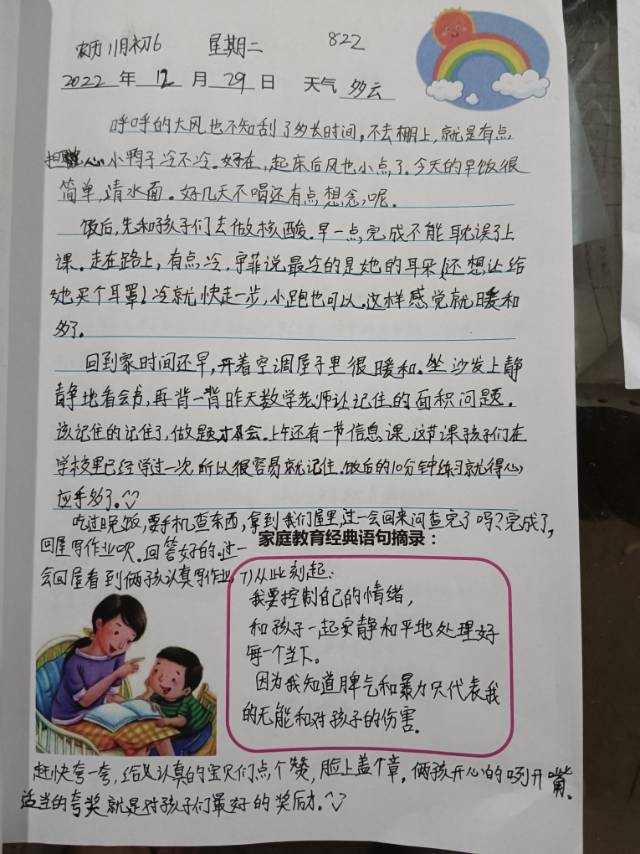 农历 11月初6 星期二 822
2022 年 12 月 29 日 天气 多云
呼呼的大风也不知刮了多长时间,不去棚上,就是有点
担心小鸭子冷不冷。好在,起床后风也小点了。今天的早饭很
简单,清水面。好几天不喝还有点想念,呢。
饭后,先和孩子们去做核酸。早一点完成不能耽误了上
课。走在路上,有点冷,宇菲说最冷的是她的耳朵(还想让给
她买个耳罩)冷就快走一步,小跑也可以,这样感觉就暖和
多了。
回到家时间还早,开着空调屋子里很暖和。坐沙发上静
静地看会书,再背一背昨天数学老师让记住的面积问题。
该记住的记住了,做题才会。上午还有一节信息课,这节课孩子们在
学校里已经学过一次,所以很容易就记住。饭后的10分钟练习就得心
应手多了。
吃过晚饭,要手机查东西,拿到我们屋里,过一会回来问查完了吗?完成了,
回屋写作业呗。回答好的。过一
会回屋看到俩孩认真写作业
家庭教育经典语句摘录:
7)从此刻起:
我要控制自己的情绪,
和孩子一起安静和平地处理好
每一个当下。
因为我知道脾气和暴力只代表我
的无能和对孩子的伤害.
赶快夸一夸,给认真的宝贝们点个赞,脸上盖个章。俩孩开心的咧开嘴.
适当的夸奖就是对孩子们最好的奖励。